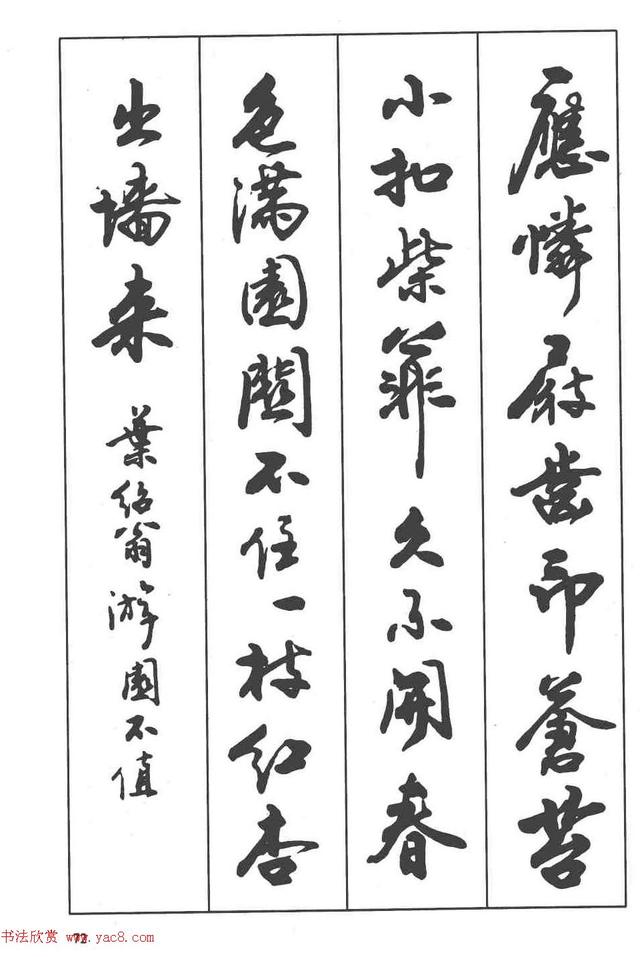 應憐屐齒印蒼苔
小扣柴扉久不開春
色滿園關不住一枝紅杏
出墻来
葉紹翁游園不值
72
书法欣赏 www.yac8.com